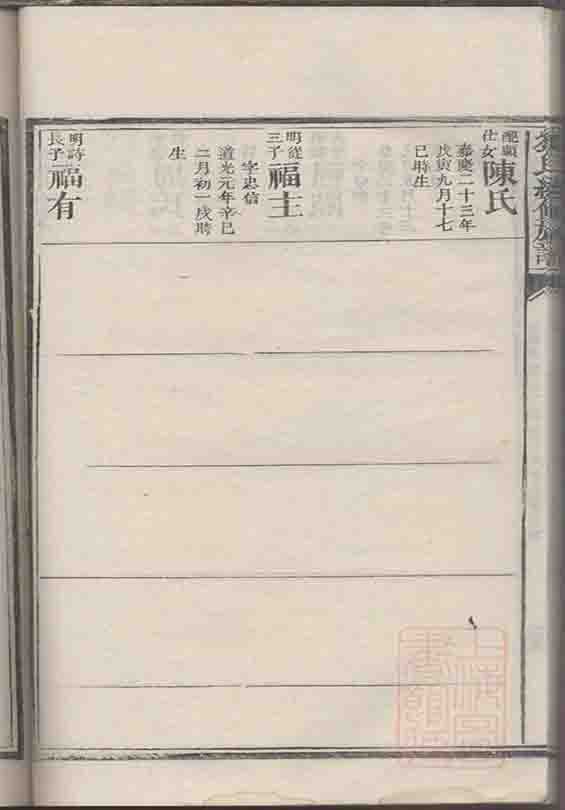 配顯
仕女
陳氏
嘉慶二十三年
戊寅九月十七
巳時生
明從
三子
福主
字忠信
道光元年辛巳
二月初一戌時
生
明詩
長子
福有